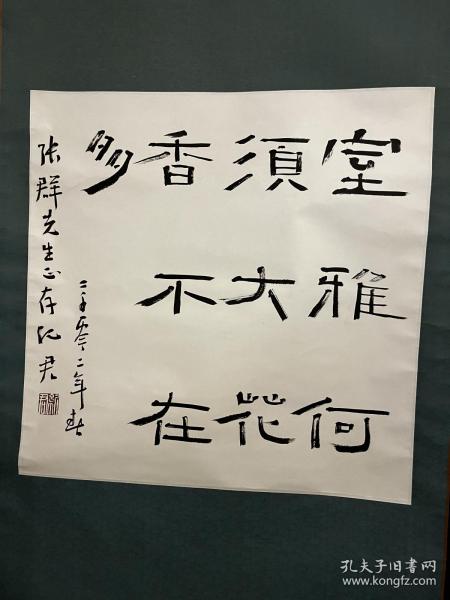 室雅何
須大花
香不在
多
二千零二年春
张群先生正存
孔夫子旧书网
www.kongfz.com